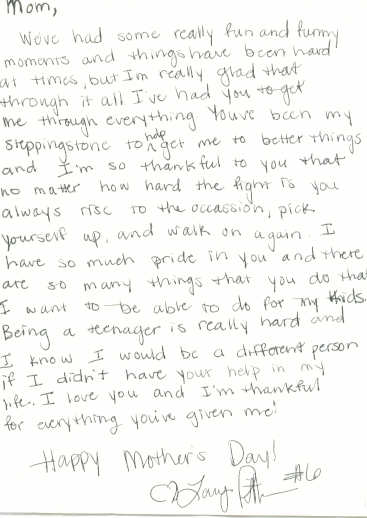 Mom,
We've had some really fun and funny
moments and things have been hard
at times, but I'm really glad that
through it all I've had you to get
me through everything You've been my
steppingstone to help get me to better things
and I'm so thankful to you that
no matter how hard the fight is you
always rise to the occassion, pick
yourself up, and walk on again. I
have so much pride in you and there
are so many things that you do that
I want to be able to do for my kids.
Being a teenager is really hard and
I know I would be a different person
if I didn't have your help in my
life. I love you and I'm thankful
for everything you've given me!
Happy Mother's Day!
#6